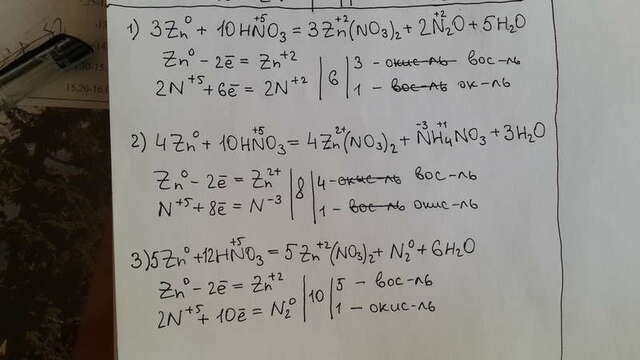 15.20-16.
1) 3Zn⁰ + 10HN⁺⁵O₃ = 3Zn⁺²(NO₃)₂ + 2N⁺²₂O + 5H₂O
Zn⁰ - 2ē = Zn⁺² | 6 | 3 - окис-ль вос-ль
2N⁺⁵ + 6ē = 2N⁺² | 6 | 1 - вос-ль ок-ль
2) 4Zn⁰ + 10HN⁺⁵O₃ = 4Zn²⁺(NO₃)₂ + N⁻³H⁺¹₄NO₃ + 3H₂O
Zn⁰ - 2ē = Zn²⁺ | 8 | 4 - окис-ль вос-ль
N⁺⁵ + 8ē = N⁻³ | 8 | 1 - вос-ль окис-ль
3) 5Zn⁰ + 12HN⁺⁵O₃ = 5Zn⁺²(NO₃)₂ + N₂⁰ + 6H₂O
Zn⁰ - 2ē = Zn⁺² | 10 | 5 - вос-ль
2N⁺⁵ + 10ē = N₂⁰ | 10 | 1 - окис-ль